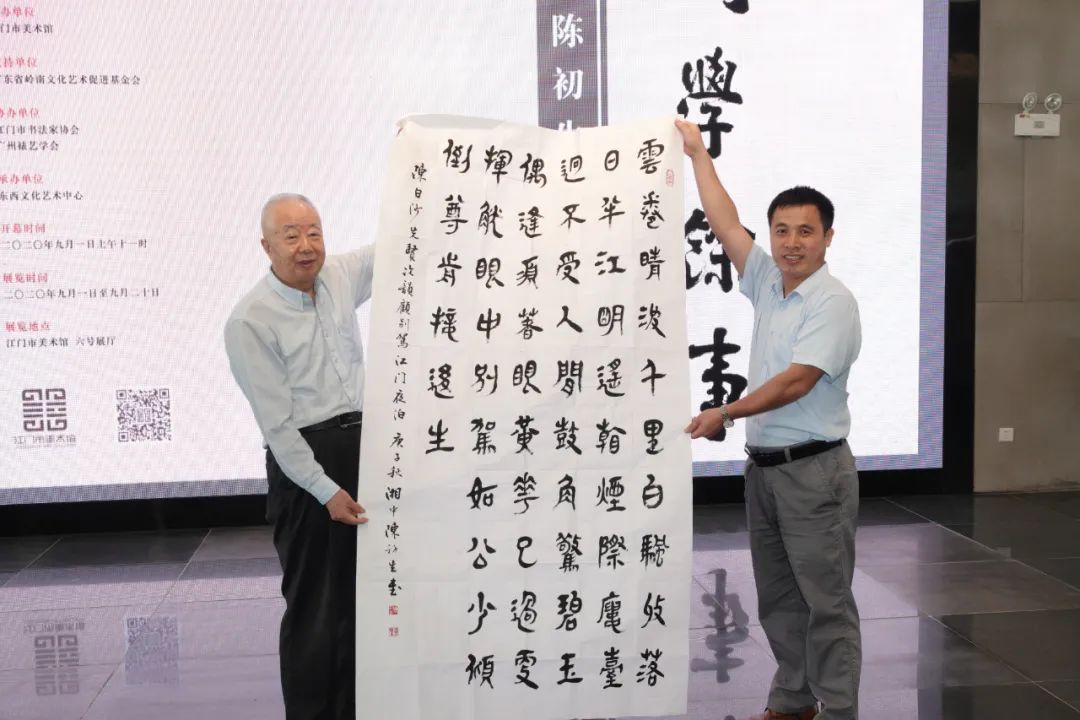 办单位
门市美术馆
支持单位
广东省岭南文化艺术促进基金会
协办单位
江门市书法家协会
广州裱艺学会
承办单位
东西文化艺术中心
开幕时间
二〇二〇年九月一日上午十一时
展览时间
二〇二〇年九月一日至九月二十日
展览地点
江门市美术馆 六号展厅
江门市美术馆
陈初生
學餘事
雲卷晴波千里白颿收落
日半江明遙看煙際鳳臺
迥不受人間鼓角驚碧玉
偶逢須著眼黃花已過更
揮觥眼中别駕如公少傾
倒尊肯接後生
陳白沙先賢次韻顧别駕江门夜泊 庚子秋 湘中陳初生書